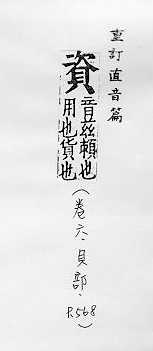 重訂直音篇
資
音玆賴也
用也貨也
(卷六·貝部·
P.568)